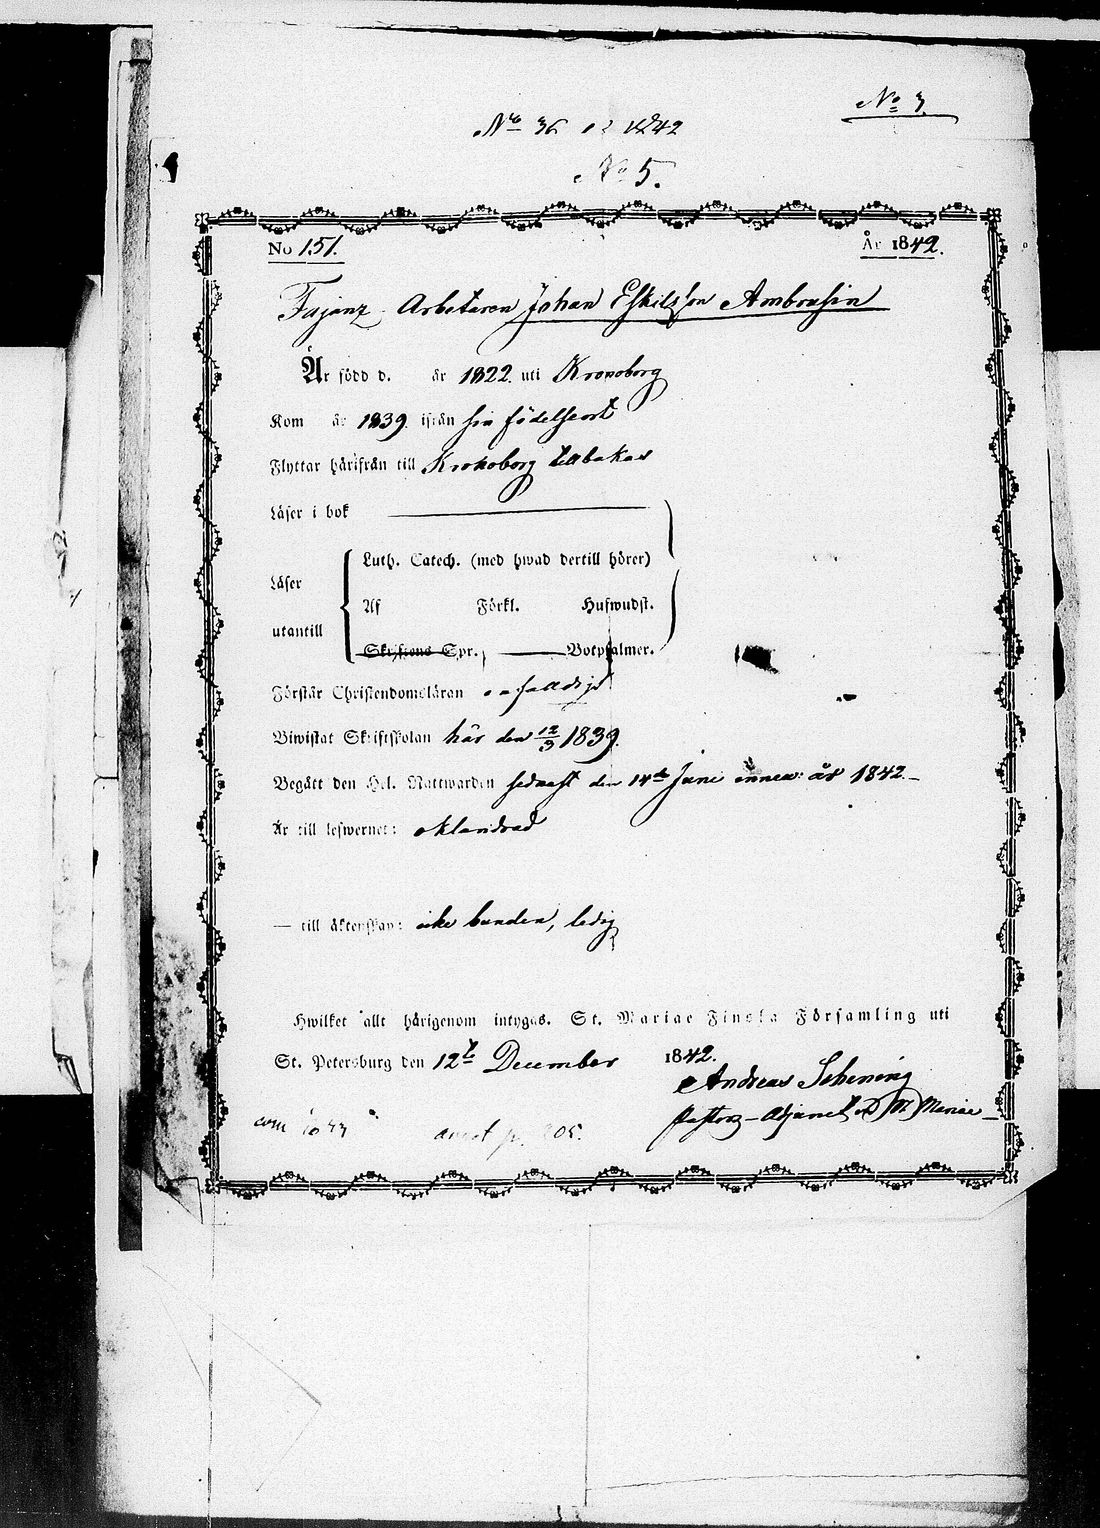 No 3.
No 36 1842
No 5.
No 151. År 1842.
Fajanz Arbetaren Johan Eskilsson Ambrusin
Är född d. år 1822. uti Kronoborg
Kom år 1839. ifrån sin födelseort
Flyttar härifrån till Kronoborg tillbakas
Läser i bok
Läser utantill
Luth. Catech. (med hwad dertill hörer)
Af Förkl. Hufwudst.
Skriftens Spr. Botpsalmer.
Förstår Christendomsläran enfalldigt
Biwistat Skriftskolan här den 12/3 1839.
Begått den Hel. Nattwarden sednast den 14de Juni innew: år 1842.
Är till lefwernet: oklandrad
— till äktenskap: icke bunden, ledig
Hwilket allt härigenom intygas. St. Mariae Finska Församling uti
St. Petersburg den 12te December 1842.
Andreas Schening
Pastors-Adjunct St. Mariae